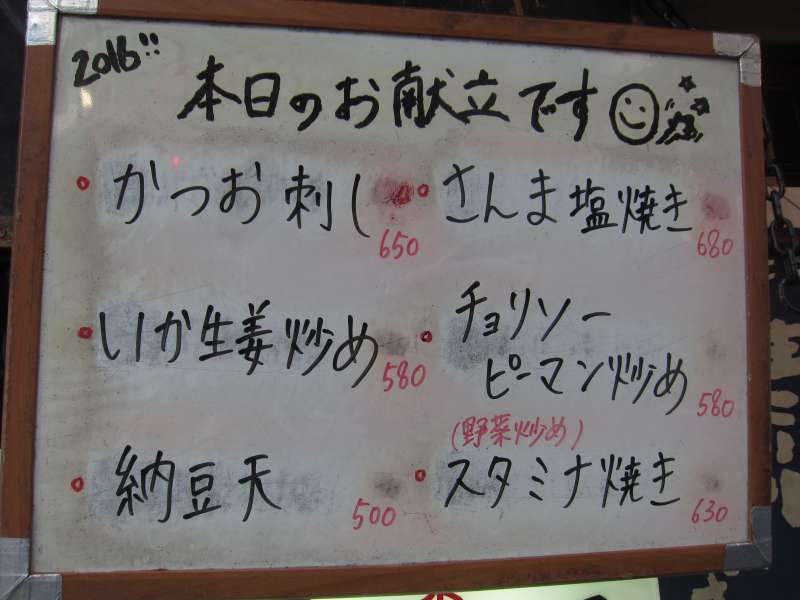 2016!!
本日のお献立です
かつお刺し
650
さんま塩焼き
680
いか生姜炒め
580
チョリソー
ピーマン炒め
580
納豆天
500
(野菜炒め)
スタミナ焼き
630